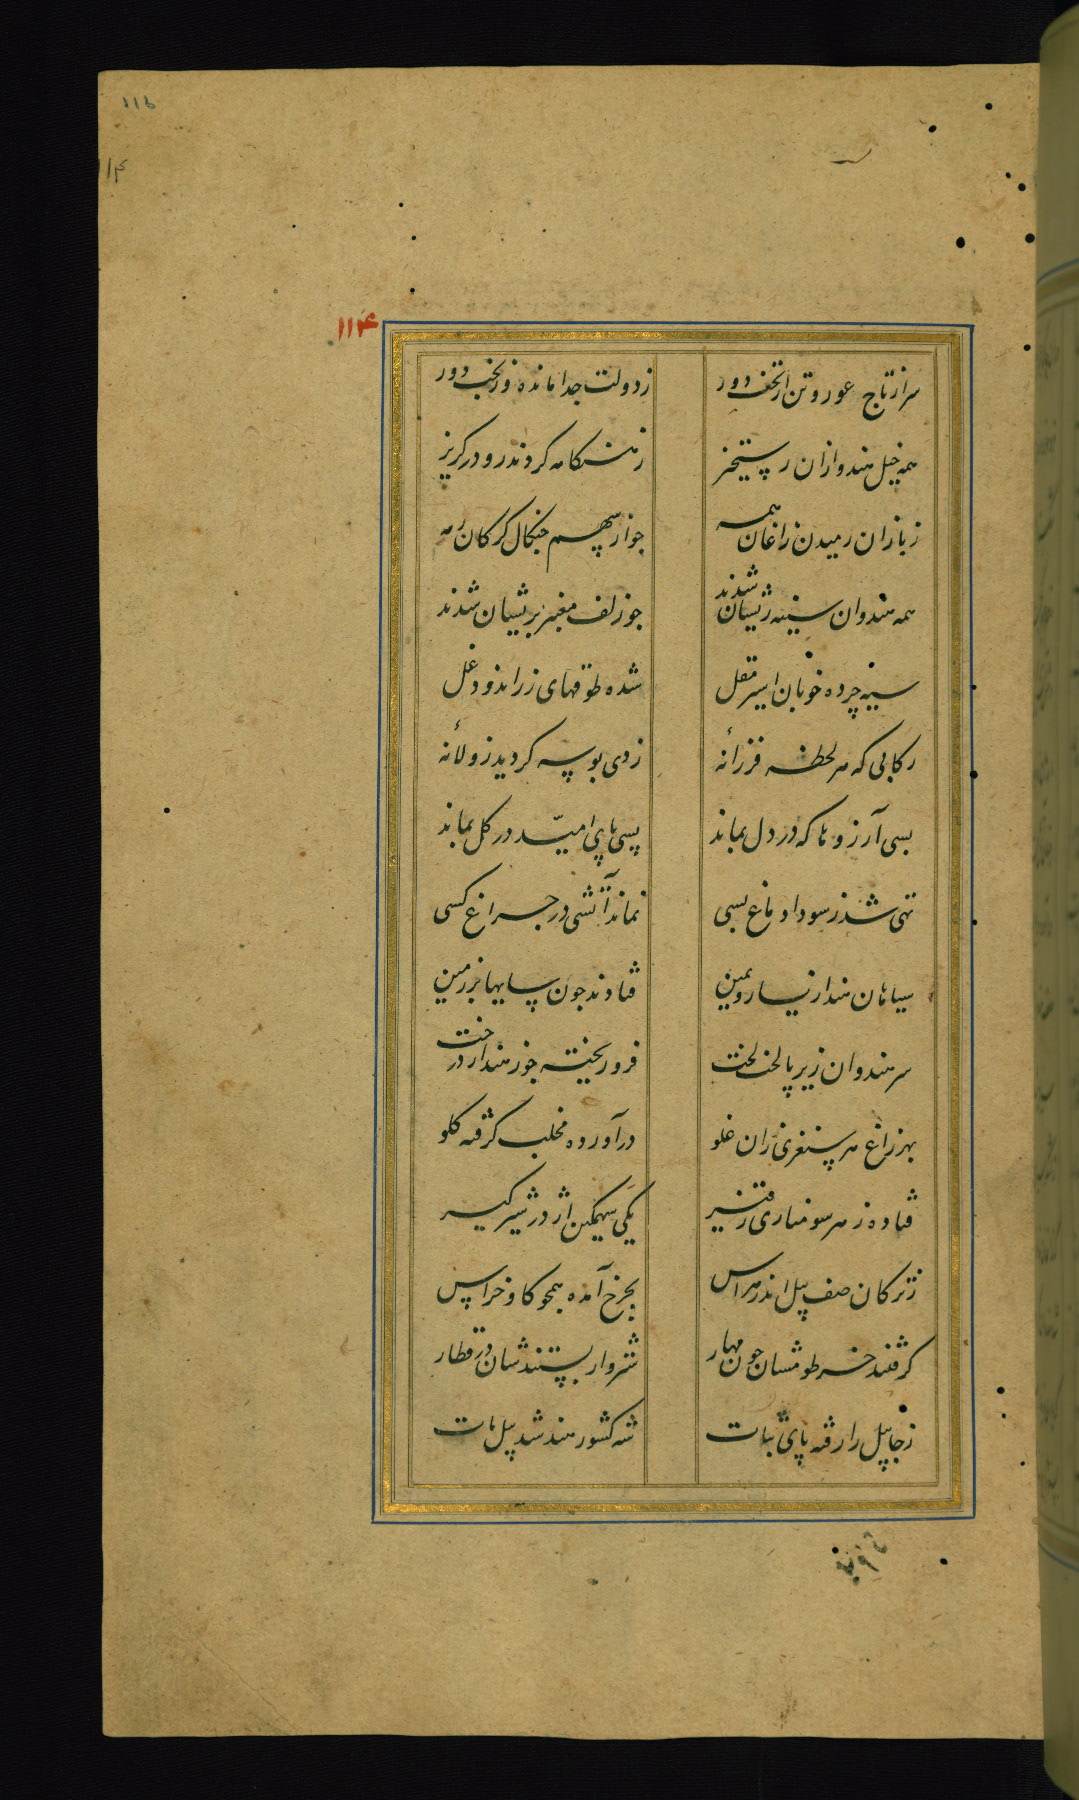 ۱۱۵
۱۱۴
۱۱۴
سر از تاج عور و تن از تخت دور زدولت جدا مانده وز بخت دور
همه خیل هندو ازان رستخیز ز هنکامه کردند رو در کریز
ز بازان رمیدن زاغان همه جو از سهم جنکال کرکان رمه
همه هندوان سینه ریشان شدند جو زلف معنبر پریشان شدند
سیه چرده خوبان اسیر مقل شده طوقهای زر اندود غل
رکابی که هر لحظه فرزانه زدی بوسه کردید زولانه
بسی آرزوها که در دل بماند بسی پای امید در کل بماند
تهی شد ز سودا دماغ بسی نماند آتشی در جراغ کسی
سیاهان هند از یسار و یمین فتادند جون سایها بر زمین
سر هندوان زیر پا لخت لخت فرو ریخته جوز هند از درخت
بهر زاغ هر سنغری زان غلو درآورده مخلب کرفته کلو
فتاده ز هر سو مناری ز قیر یکی سهمکین اژدر شیر کیر
ز ترکان صف پیل اندر هراس بجرخ آمده همجو کاو خراس
کرفتند خرطومشان جون مهار شتروار بستندشان در قطار
ز جا پیل را رفته پای ثبات شه کشور هند شد پیل مات